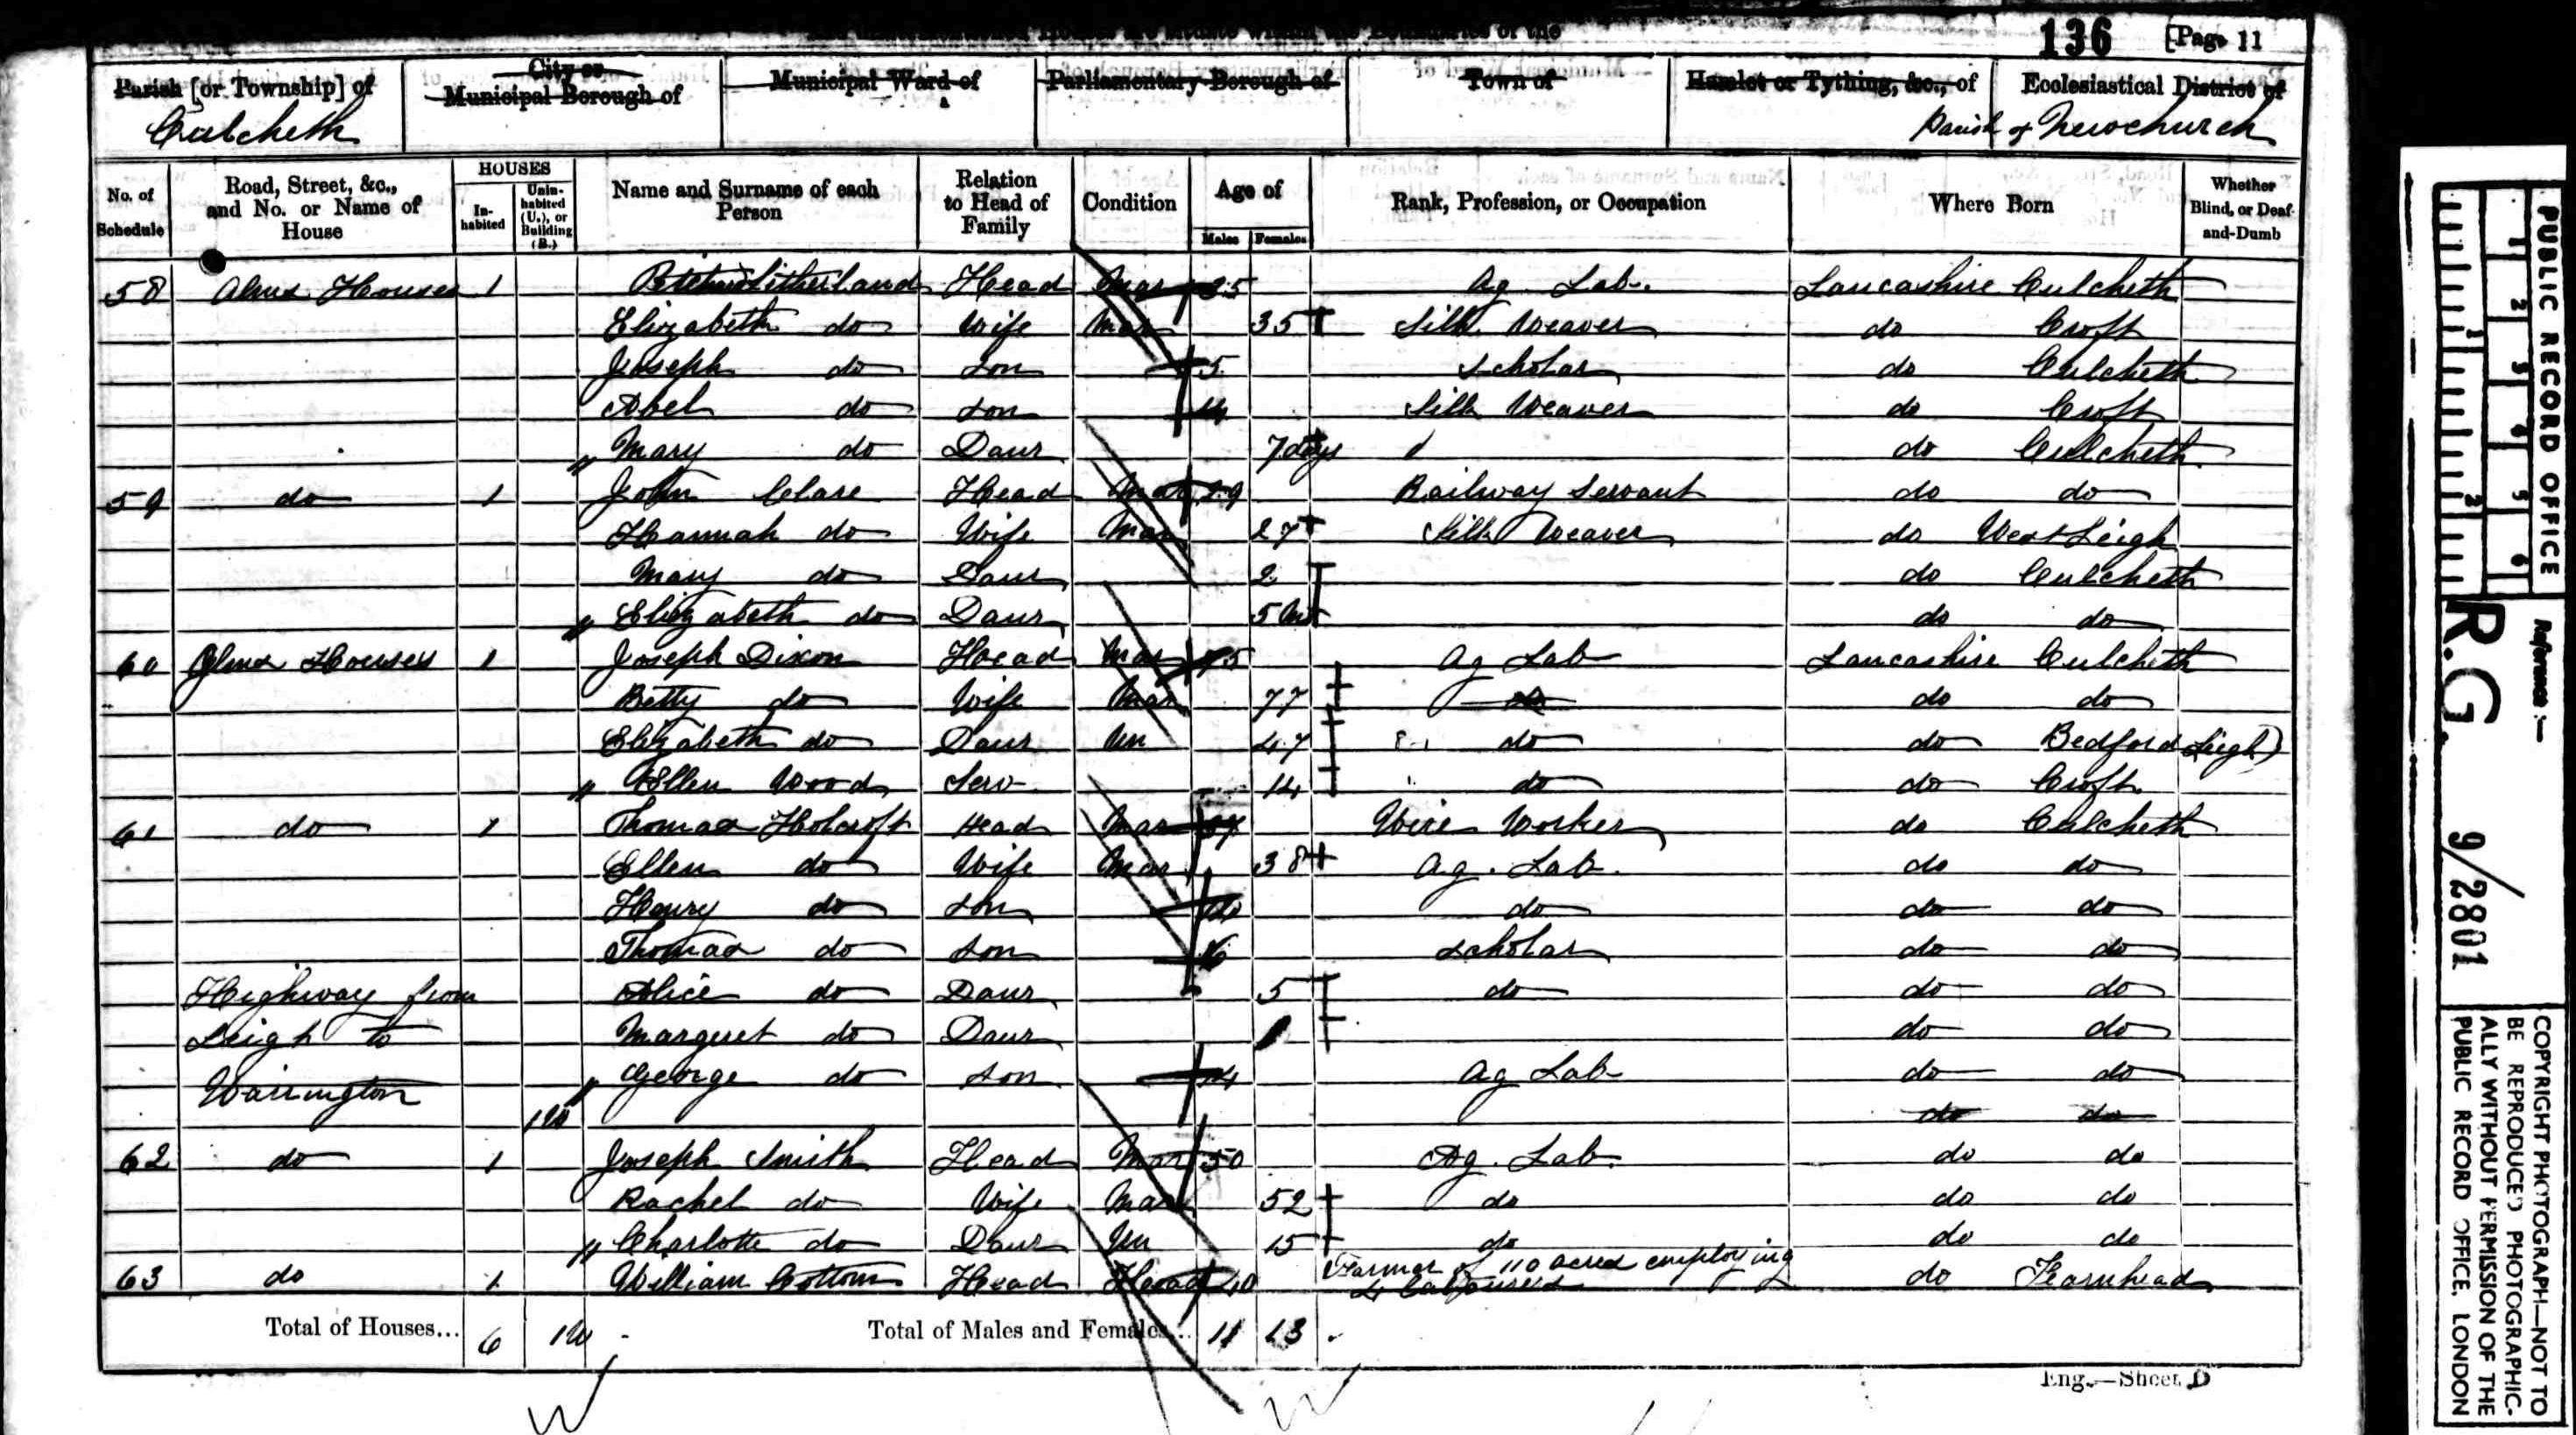 136 [Page 11
Parish [or Township] of
Culcheth
City or
Municipal Borough of
Municipal Ward of
Parliamentary Borough of
Town of
Hamlet or Tything, &c., of
Ecclesiastical District of
Parish of Newchurch
No. of Schedule
Road, Street, &c., and No. or Name of House
HOUSES
In-habited
Unin-habited (U.), or Building (B.)
Name and Surname of each Person
Relation to Head of Family
Condition
Age of
Males Females
Rank, Profession, or Occupation
Where Born
Whether Blind, or Deaf-and-Dumb
58 Alms Houses 1 Litherland Head Mar 35 Ag Lab. Lancashire Culcheth
Elizabeth do Wife Mar 35 Silk Weaver do Croft
Joseph do Son 5 Scholar do Culcheth
Abel do Son 14 Silk Weaver do Croft
" Mary do Daur 7 days do Culcheth
59 do 1 John Clare Head Mar 29 Railway Servant do do
Hannah do Wife Mar 27 Silk Weaver do West Leigh
Mary do Daur 2 do Culcheth
" Elizabeth do Daur 5 M do do
60 Alms Houses 1 Joseph Dixon Head Mar 75 Ag Lab Lancashire Culcheth
Betty do Wife Mar 77 do do do
Elizabeth do Daur Un 47 do do Bedford Leigh)
" Ellen Wood Serv 14 do do Croft
61 do 1 Thomas Holcroft Head Mar 37 Wire Worker do Culcheth
Ellen do Wife Mar 38 Ag. Lab. do do
Henry do Son do do do
Thomas do Son Scholar do do
Highway from Alice do Daur 5 do do do
Leigh to Margeret do Daur 1 do do
Warrington " George do Son 14 Ag Lab do do
1U do do
62 do 1 Joseph Smith Head Mar 50 Ag. Lab. do do
Rachel do Wife Mar 52 do do do
" Charlotte do Daur Un 15 do do do
63 do 1 William Cottom Head Head 40 Farmer of 110 acres employing do Fearnhead
4 labourers
Total of Houses... 6 1U Total of Males and Females... 11 13
Eng.—Sheet D
PUBLIC RECORD OFFICE
1 2 3 4 5 6
1 2
Reference :—
R.G. 9/2801
COPYRIGHT PHOTOGRAPH—NOT TO
BE REPRODUCED PHOTOGRAPHIC-
ALLY WITHOUT PERMISSION OF THE
PUBLIC RECORD OFFICE, LONDON